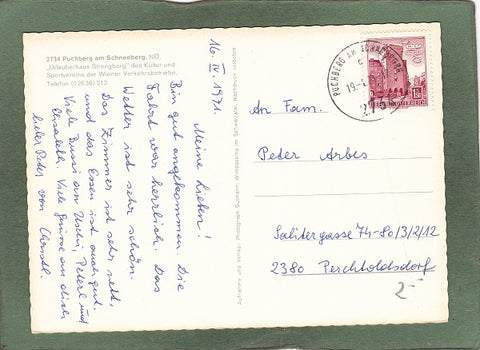 2734 Puchberg am Schneeberg, NÖ.
"Urlauberhaus Strengberg" des Kultur- und
Sportvereins der Wiener Verkehrsbetriebe,
Telefon (02636) 212
16. IV. 1971.
Meine Lieben!
Bin gut angekommen. Die
Fahrt war herrlich. Das
Wetter ist sehr schön.
Das Zimmer ist sehr nett,
und das Essen ist auch gut.
Viele Bussi an Peterl und
Elisabeth. Viele Grüße an dich
lieber Peter von
PUCHBERG AM SCHNEEBERG
19.
2734
ÖSTERREICH
An Fam.
Peter Arbes
Salitergasse 74-80/3/2/12
2380 Perchtoldsdorf
2-